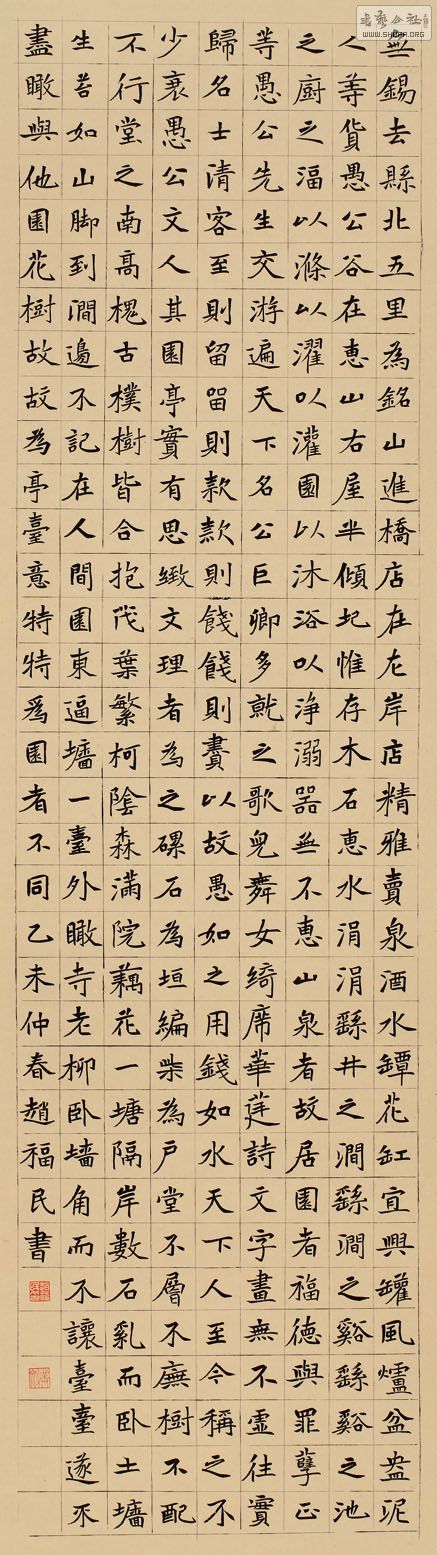 無錫去縣北五里為銘山進橋店在左岸店精雅賣泉酒水罈花缸宜興罐風爐盆盎泥
人等貨愚公谷在惠山右屋半傾圮惟存木石惠水涓涓繇井之澗繇澗之谿繇谿之池
之廚之湢以滌以濯以灌園以沐浴以淨溺器無不惠山泉者故居園者福德與罪孽正
等愚公先生交游遍天下名公巨卿多就之歌兒舞女綺席華莚詩文字畫無不虛往實
歸名士清客至則留留則款款則餞餞則賮以故愚如之用錢如水天下人至今稱之不
少衰愚公文人其園亭實有思緻文理者為之磥石為垣編柴為戶堂不層不廡樹不配
不行堂之南高槐古樸樹皆合抱茂葉繁柯陰森滿院藕花一塘隔岸數石亂而臥土墻
生苔如山脚到澗邊不記在人間園東逼墻一臺外瞰寺老柳臥墻角而不讓臺臺遂不
盡瞰與他園花樹故故為亭臺意特特為園者不同乙未仲春趙福民書
書藝公社
WWW.SHUFA.ORG